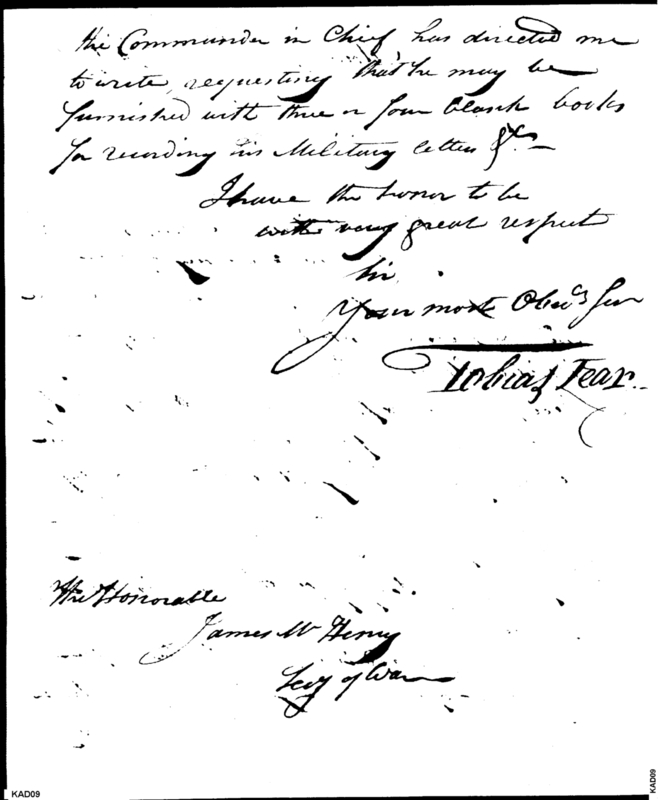 the Commander in Chief has directed me
to write, requesting that he may be
furnished with three or four blank books
for recording his Military letters &c. —
I have the honor to be
with very great respect
Sir
Your most Obedt Ser
Tobias Lear.
The Honorable
James McHenry
Secy of War
KAD09
KAD09